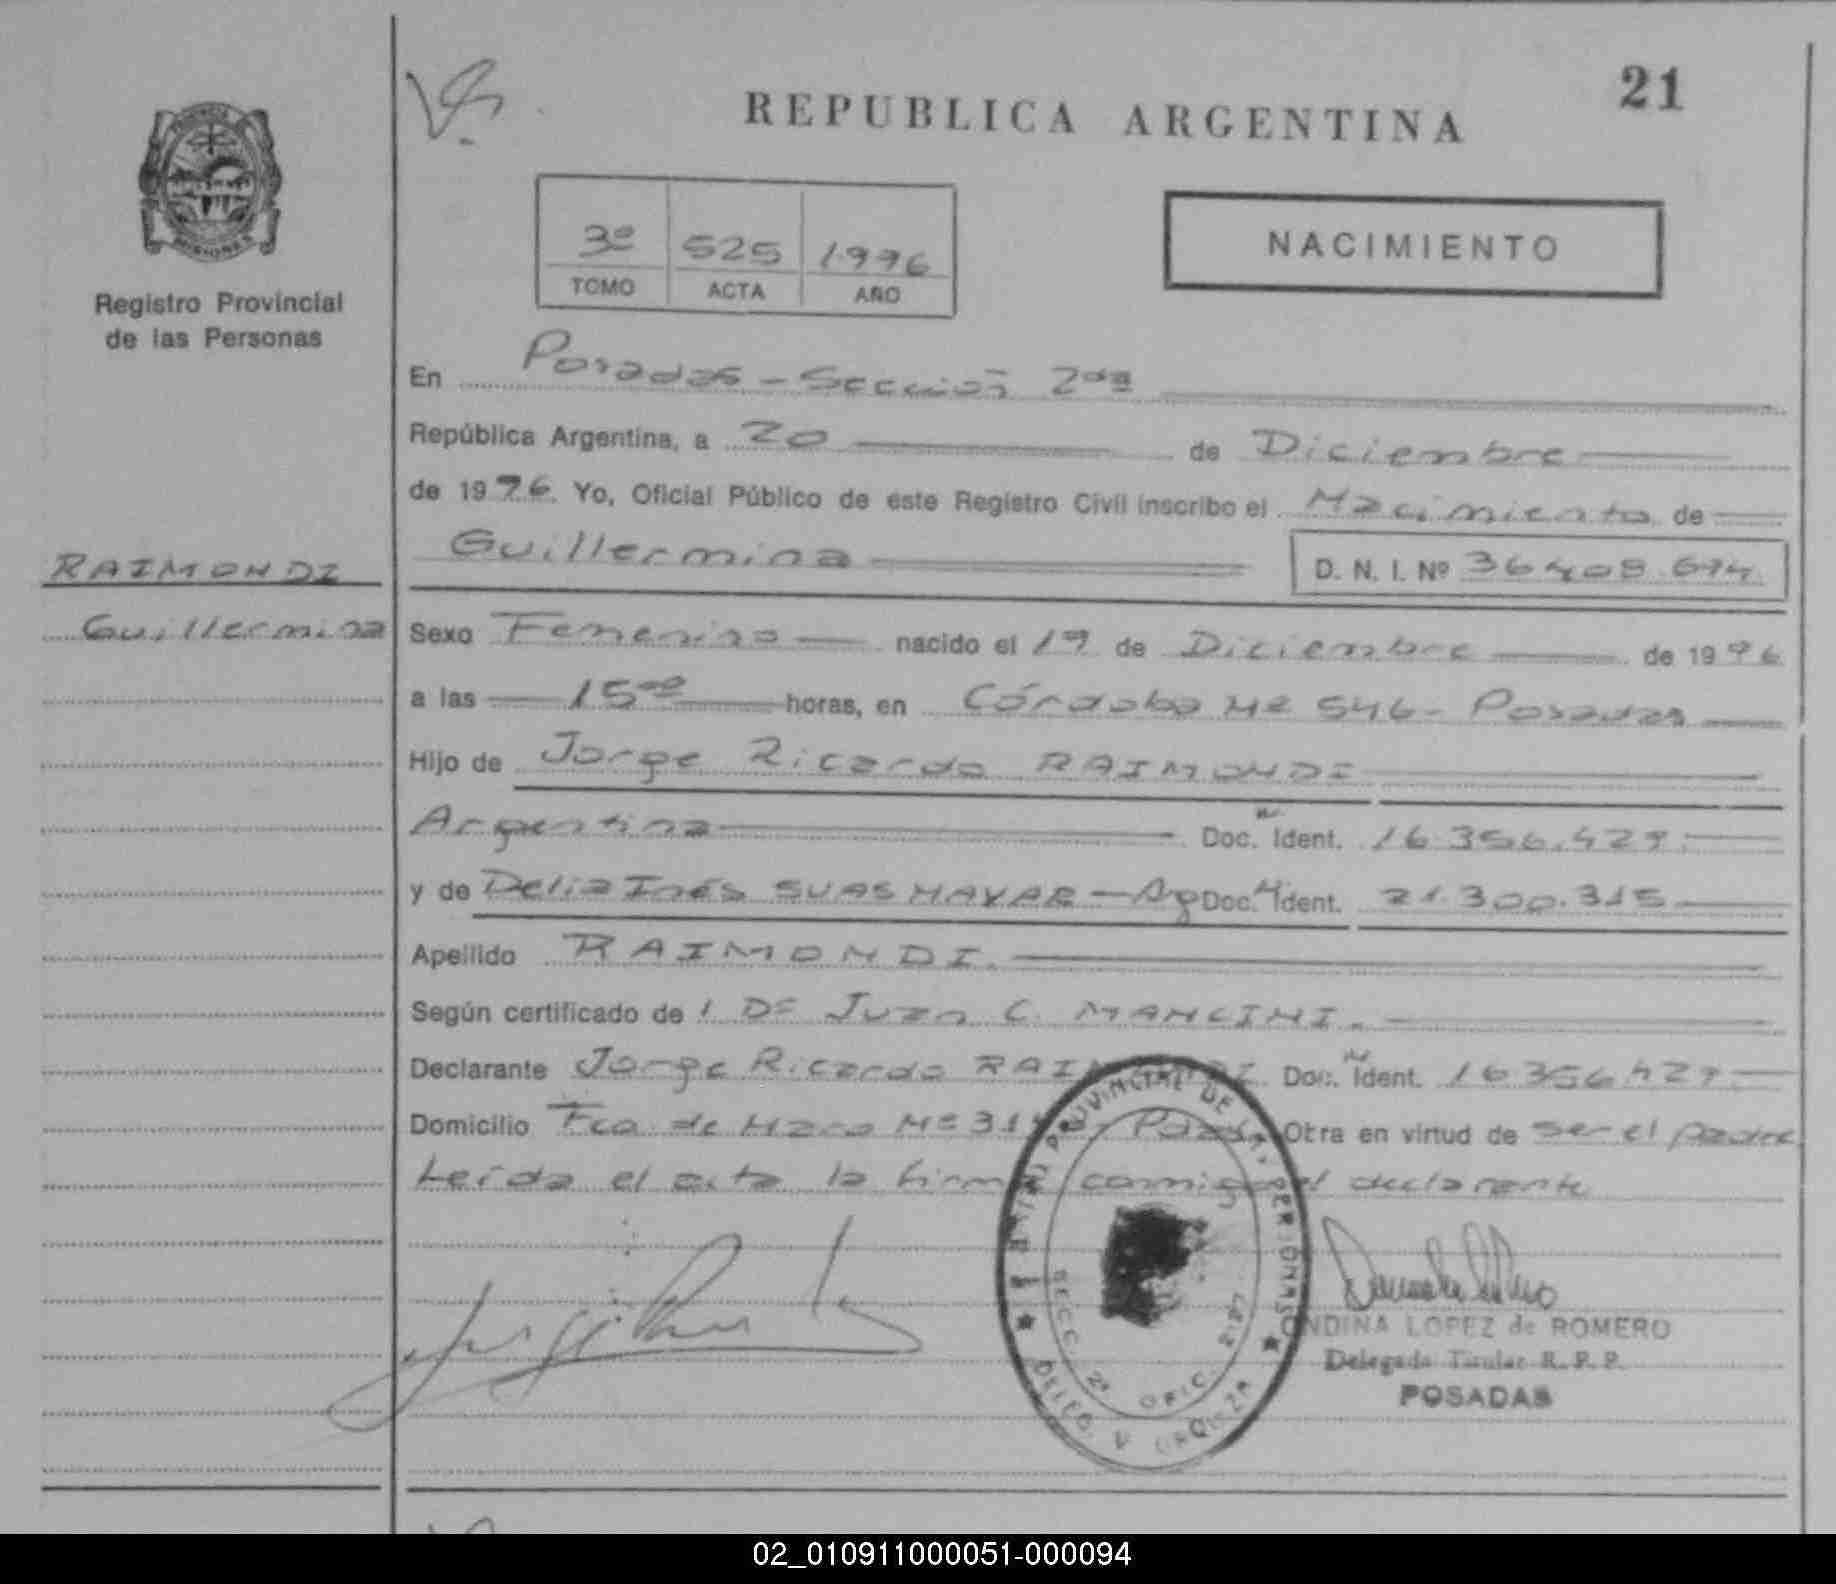 21
REPUBLICA ARGENTINA
3º 525 1.996
TOMO ACTA AÑO
NACIMIENTO
MISIONES
Registro Provincial
de las Personas
En Posadas - Sección 2da
República Argentina, a 20 de Diciembre
de 1996. Yo, Oficial Público de este Registro Civil inscribo el Nacimiento de
Guillermina D. N. I. Nº 36.408.694
RAIMONDI
Guillermina
Sexo Femenino nacido el 19 de Diciembre de 1996
a las 15 00 horas, en Córdoba Nº 546 - Posadas
Hijo de Jorge Ricardo RAIMONDI
Argentina Doc. Ident. 16.356.429.
y de Delia Inés SUASNAVAR - Ag Doc. Ident. 21.300.315
Apellido RAIMONDI.
Según certificado de 1 Dr Juan C. MANCINI.
Declarante Jorge Ricardo RAIMONDI. Doc. Ident. 16356429.
Domicilio Fco de Haro Nº - Posadas Otra en virtud de ser el padre
Leída el acta la firma conmigo el declarante
PROVINCIAL DE LAS PERSONAS
SECC. 2ª OFIC.
DELEG. V. URQUIZA
ONDINA LOPEZ de ROMERO
Delegada Titular R. P. P.
POSADAS
02_010911000051-000094